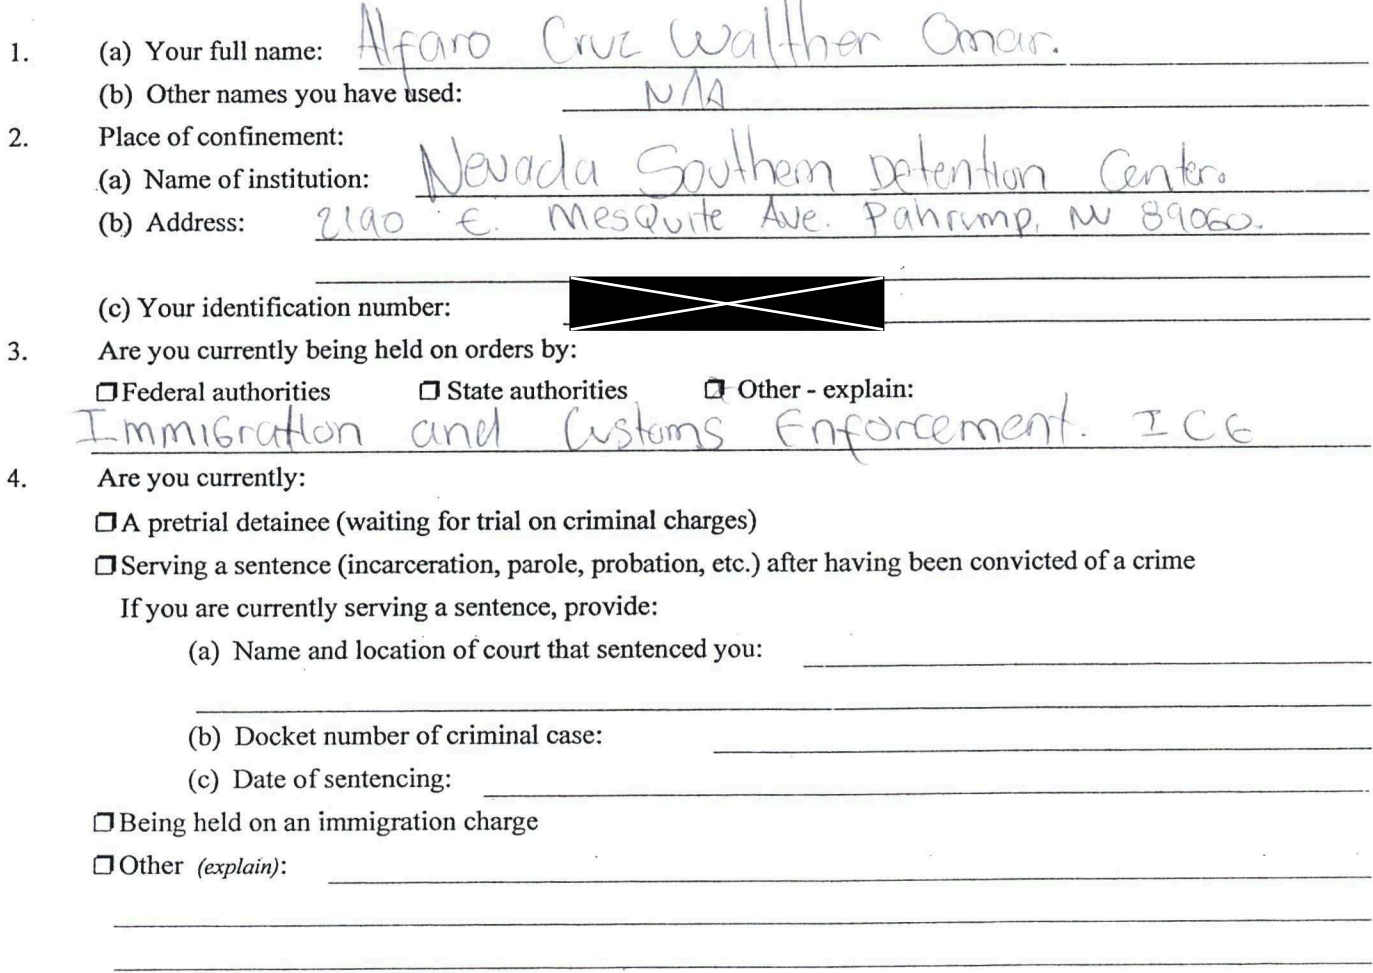 1. (a) Your full name: Alfaro Cruz Walther Omar.
(b) Other names you have used: N/A
2. Place of confinement:
(a) Name of institution: Nevada Southern Detention Center.
(b) Address: 2190 E. Mesquite Ave. Pahrump, NV 89060.
(c) Your identification number:
3. Are you currently being held on orders by:
☐ Federal authorities ☐ State authorities ☐ Other - explain:
Immigration and Customs Enforcement. ICE
4. Are you currently:
☐ A pretrial detainee (waiting for trial on criminal charges)
☐ Serving a sentence (incarceration, parole, probation, etc.) after having been convicted of a crime
If you are currently serving a sentence, provide:
(a) Name and location of court that sentenced you:
(b) Docket number of criminal case:
(c) Date of sentencing:
☐ Being held on an immigration charge
☐ Other (explain):